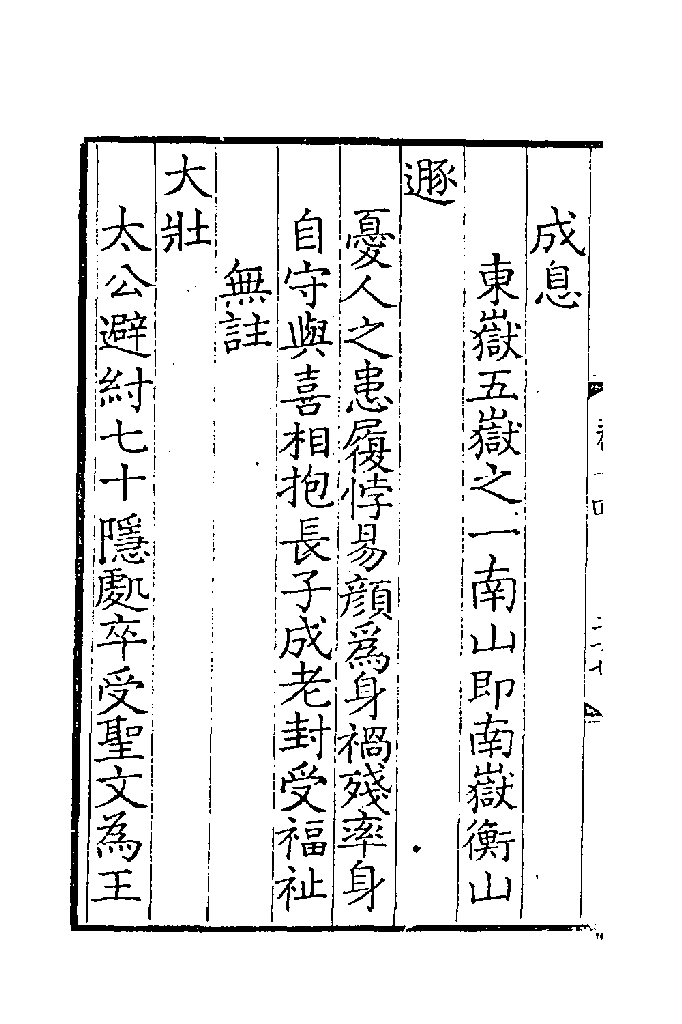 成息
東嶽五嶽之一南山即南嶽衡山
遯
憂人之患履悖易顔爲身禍殘率身
自守與喜相抱長子成老封受福祉
無註
大壯
太公避紂七十隱處卒受聖文為王